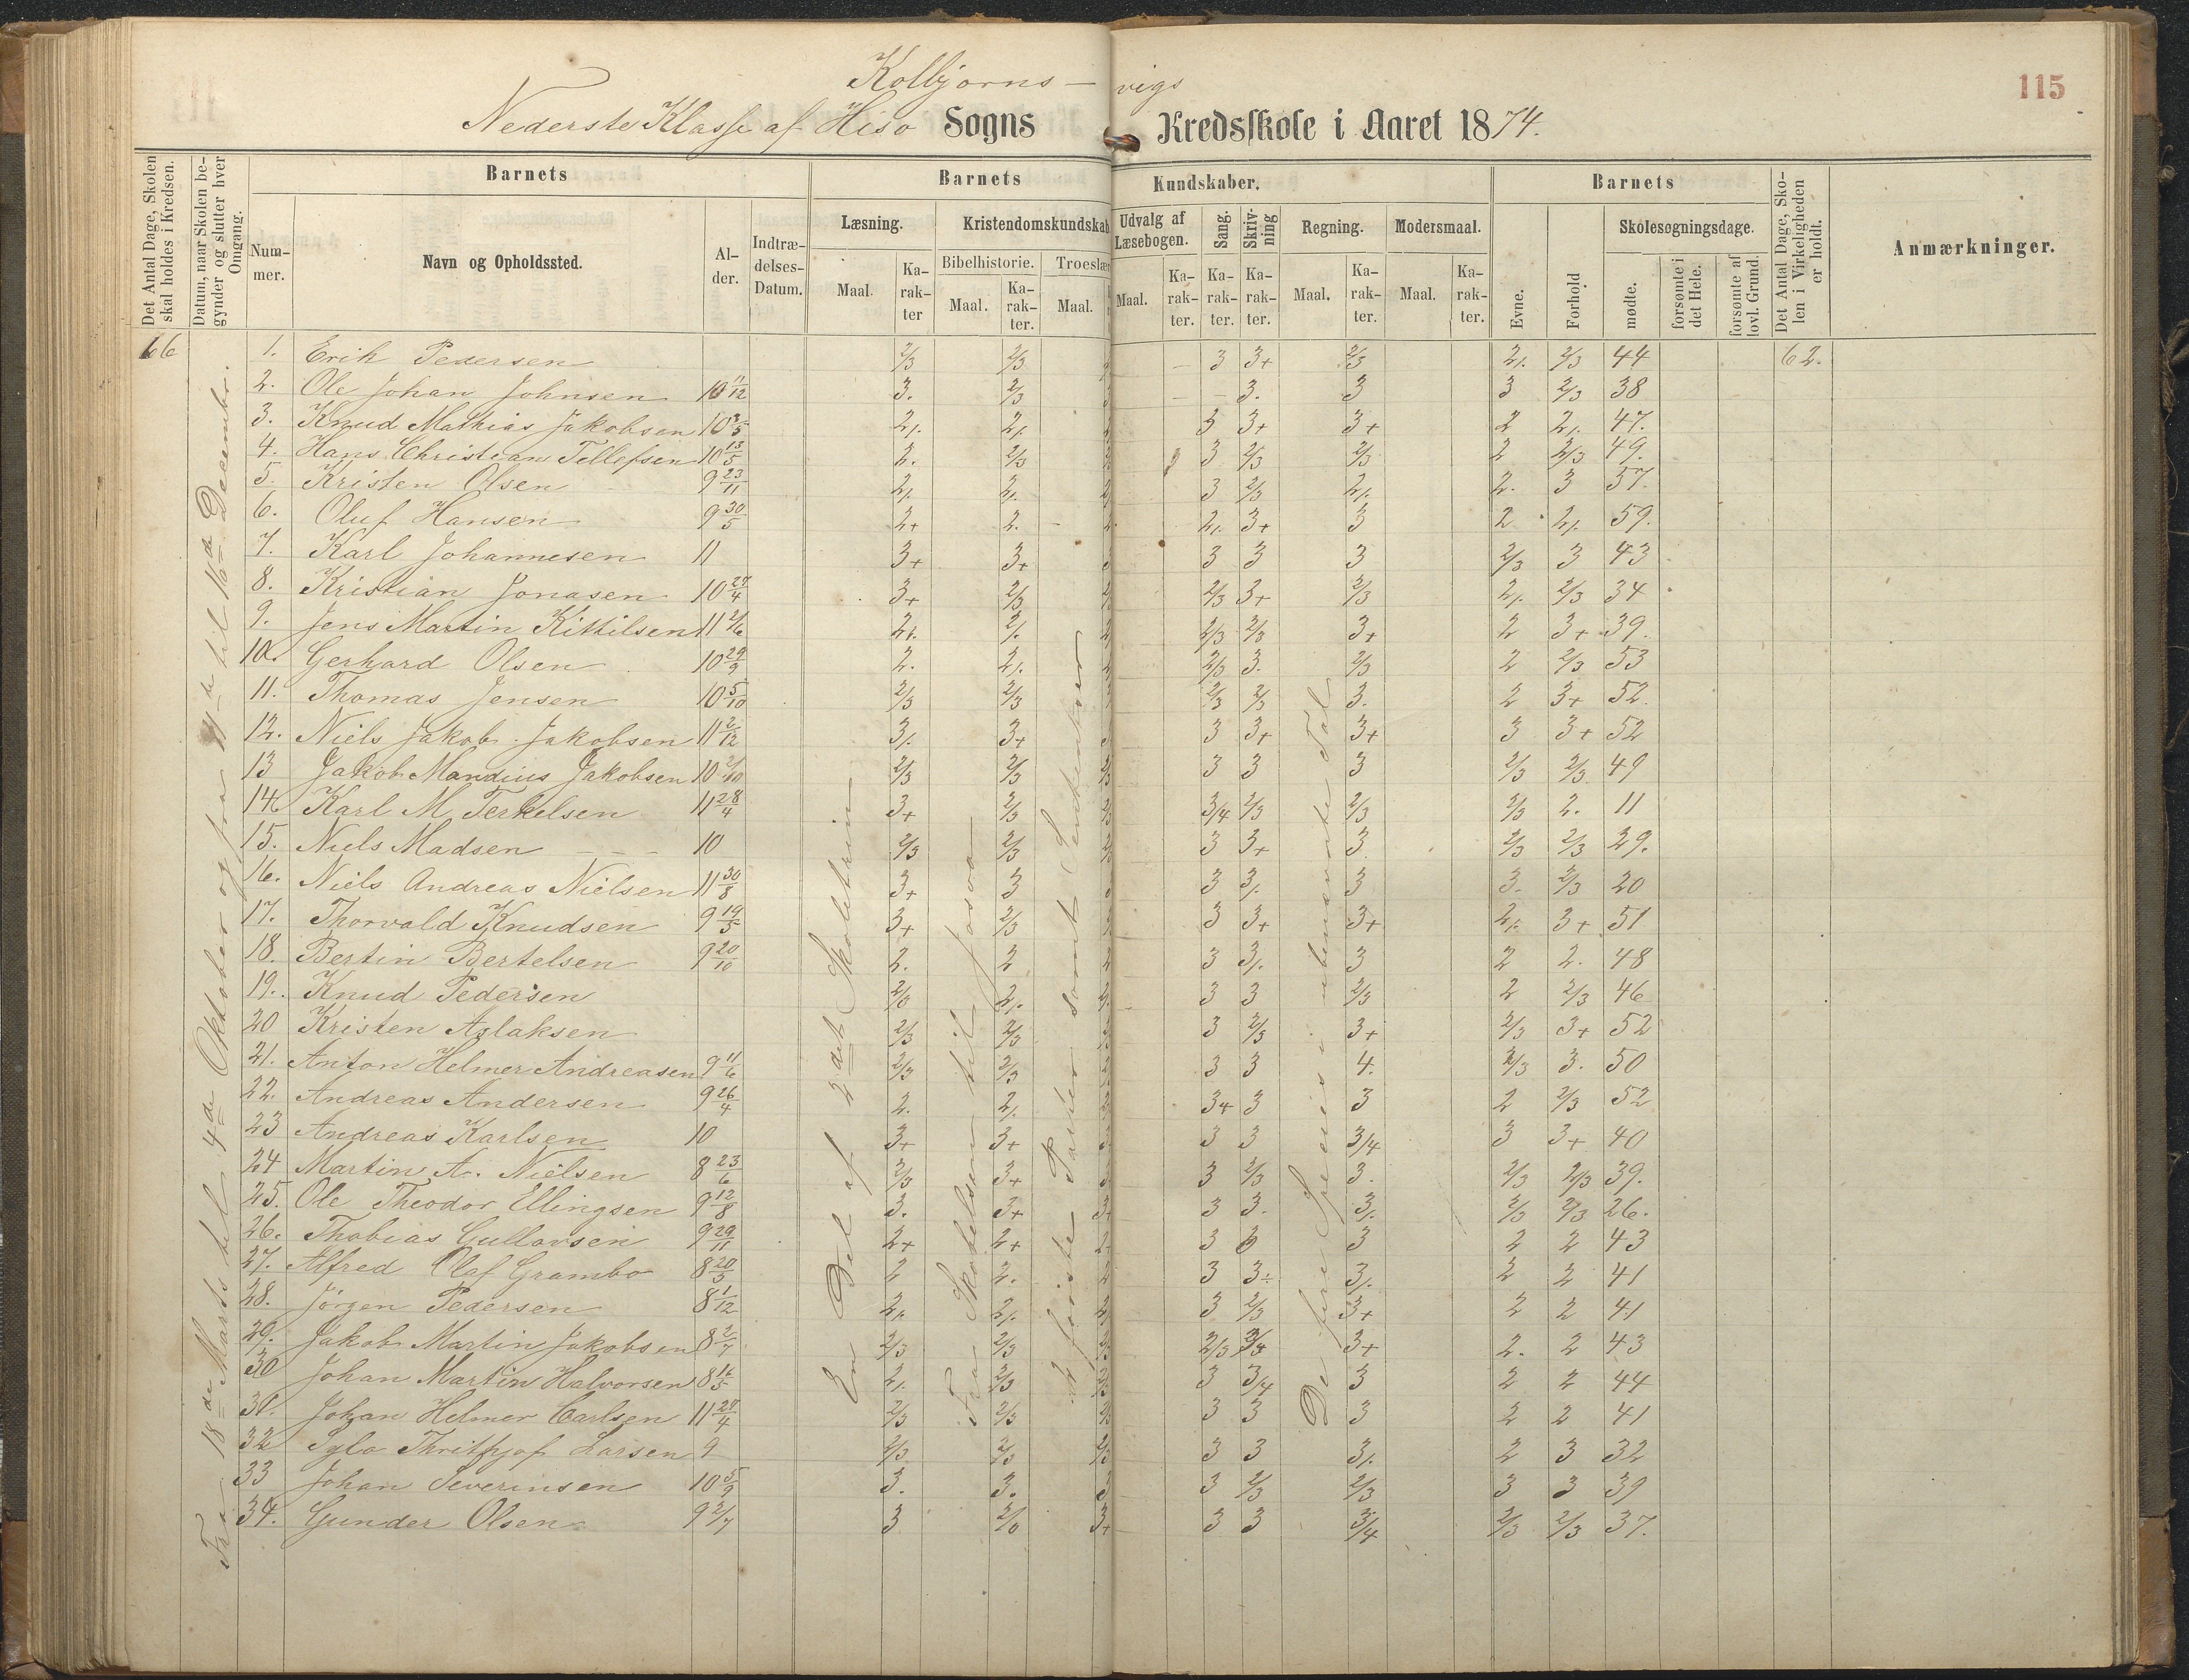 Kolbjørns-vigs
115
Nederste Klasse af Hisø Sogns Kredsskole i Aaret 1874.
Det Antal Dage, Skolen skal holdes i Kredsen.
Datum, naar Skolen begynder og slutter hver Omgang.
Barnets
Num-mer.
Navn og Opholdssted.
Al-der.
Indtræ-delses-Datum.
Barnets Kundskaber.
Læsning.
Maal.
Ka-rak-ter
Kristendomskundskab
Bibelhistorie.
Maal.
Ka-rak-ter.
Troeslær
Maal.
Udvalg af Læsebogen.
Maal.
Ka-rak-ter.
Sang.
Ka-rak-ter.
Skriv-ning
Ka-rak-ter.
Regning.
Maal.
Ka-rak-ter.
Modersmaal.
Maal.
Ka-rak-ter.
Barnets
Evne.
Forhold
Skolesøgningsdage.
mødte.
forsømte i det Hele.
forsømte af lovl. Grund.
Det Antal Dage, Sko-len i Virkeligheden er holdt.
Anmærkninger.
66
Fra 18de Marts til 4de Oktober og fra til 16de December.
En Del af 2det Skoletrin
Fra Skabelsen til
2 første Parter samt
De fire Species i ubenævnte Tal
1. Erik Pedersen 2/3 2/3 3 3+ 2/3 2/. 2/3 44 62.
2. Ole Johan Johnsen 10 11/12 3. 2/3 3. 3 3 2/3 38
3. Knud Mathias Jakobsen 10 3/5 2/. 2/. 3 3+ 3+ 2 2/. 47.
4. Hans Christian Tellefsen 10 13/5 2. 2/3 3 2/3 2/3 2 2/3 49.
5. Kristen Olsen 9 23/11 2/. 2/. 3 2/3 2/. 2. 3 57.
6. Oluf Hansen 9 30/5 2+ 2. 2/. 3+ 3 2 2/. 59.
7. Karl Johannesen 11 3+ 3+ 3 3 3 2/3 3 43
8. Kristian Jonasen 10 27/4 3+ 2/3 2/3 3+ 2/3 2/. 2/3 34
9. Jens Martin Kittilsen 11 2/6 2/. 2/. 2/3 2/3 3+ 2 3+ 39.
10. Gerhard Olsen 10 29/9 2. 2/. 2/3 3. 2/3 2 2/3 53
11. Thomas Jensen 10 5/10 2/3 2/3 2/3 2/3 3. 2 3+ 52.
12. Niels Jakob Jakobsen 11 2/12 3/. 3+ 3 3+ 3+ 3 3+ 52
13 Jakob Mandius Jakobsen 10 2/10 2/3 2/3 3 3 3 2/3 2/3 49
14. Karl M. Terkelsen 11 28/4 3+ 2/3 3/4 2/3 2/3 2/3 2. 11
15. Niels Madsen 10 2/3 2/3 3 3+ 3 2/3 2/3 29.
16. Niels Andreas Nielsen 11 30/8 3+ 3 3 3/. 3 3. 2/3 20
17. Thorvald Knudsen 9 19/5 3+ 2/3 3 3+ 3+ 2/. 3+ 51
18. Bertin Bertelsen 9 20/10 2. 2 3 3/. 3 2 2. 48
19. Knud Pedersen 2/3 2/. 3 3 2/3 2 2/3 46
20 Kristen Aslaksen 2/3 2/3 3 2/3 3+ 2/3 3+ 52
21. Anton Helmer Andreasen 9 11/6 2/3 2/3 3 3 4. 2/3 3. 50
22. Andreas Andersen 9 26/4 2. 2/. 3+ 3 3 2 2/3 52
23 Andreas Karlsen 10 3+ 3+ 3 3 3/4 3 3+ 40
24 Martin A. Nielsen 8 23/6 2/3 3+ 3 2/3 3. 2/3 2/3 39.
25. Ole Theodor Ellingsen 9 12/8 3. 3+ 3 3. 3/. 2/3 2/3 26.
26. Thobias Gullovsen 9 29/11 2+ 2+ 3 3 3 2 2 43
27. Alfred Olaf Grambo 8 20/5 2 2. 3 3÷ 3/. 2 2 41
28. Jörgen Pedersen 8 1/12 2/. 2/. 3 2/3 3+ 2 2 41
29. Jakob Martin Jakobsen 8 2/7 2/3 2/3 2/3 2/3 3+ 2. 2 43
30 Johan Martin Halvorsen 8 16/5 2/. 2/3 3 3/4 3 2 2 44
31. Johan Helmer Carlsen 11 27/4 2/3 2/3 3 3 3 2 2 41
32 Thritfjof Larsen 9 2/3 2/3 3 3 3/. 2 3 32
33 Johan Severinsen 10 5/9 3. 3. 3 2/3 2/3 3 3 39
34. Gunder Olsen 9 2/7 3 2/3 3 3 3/4 2/3 2/3 37.